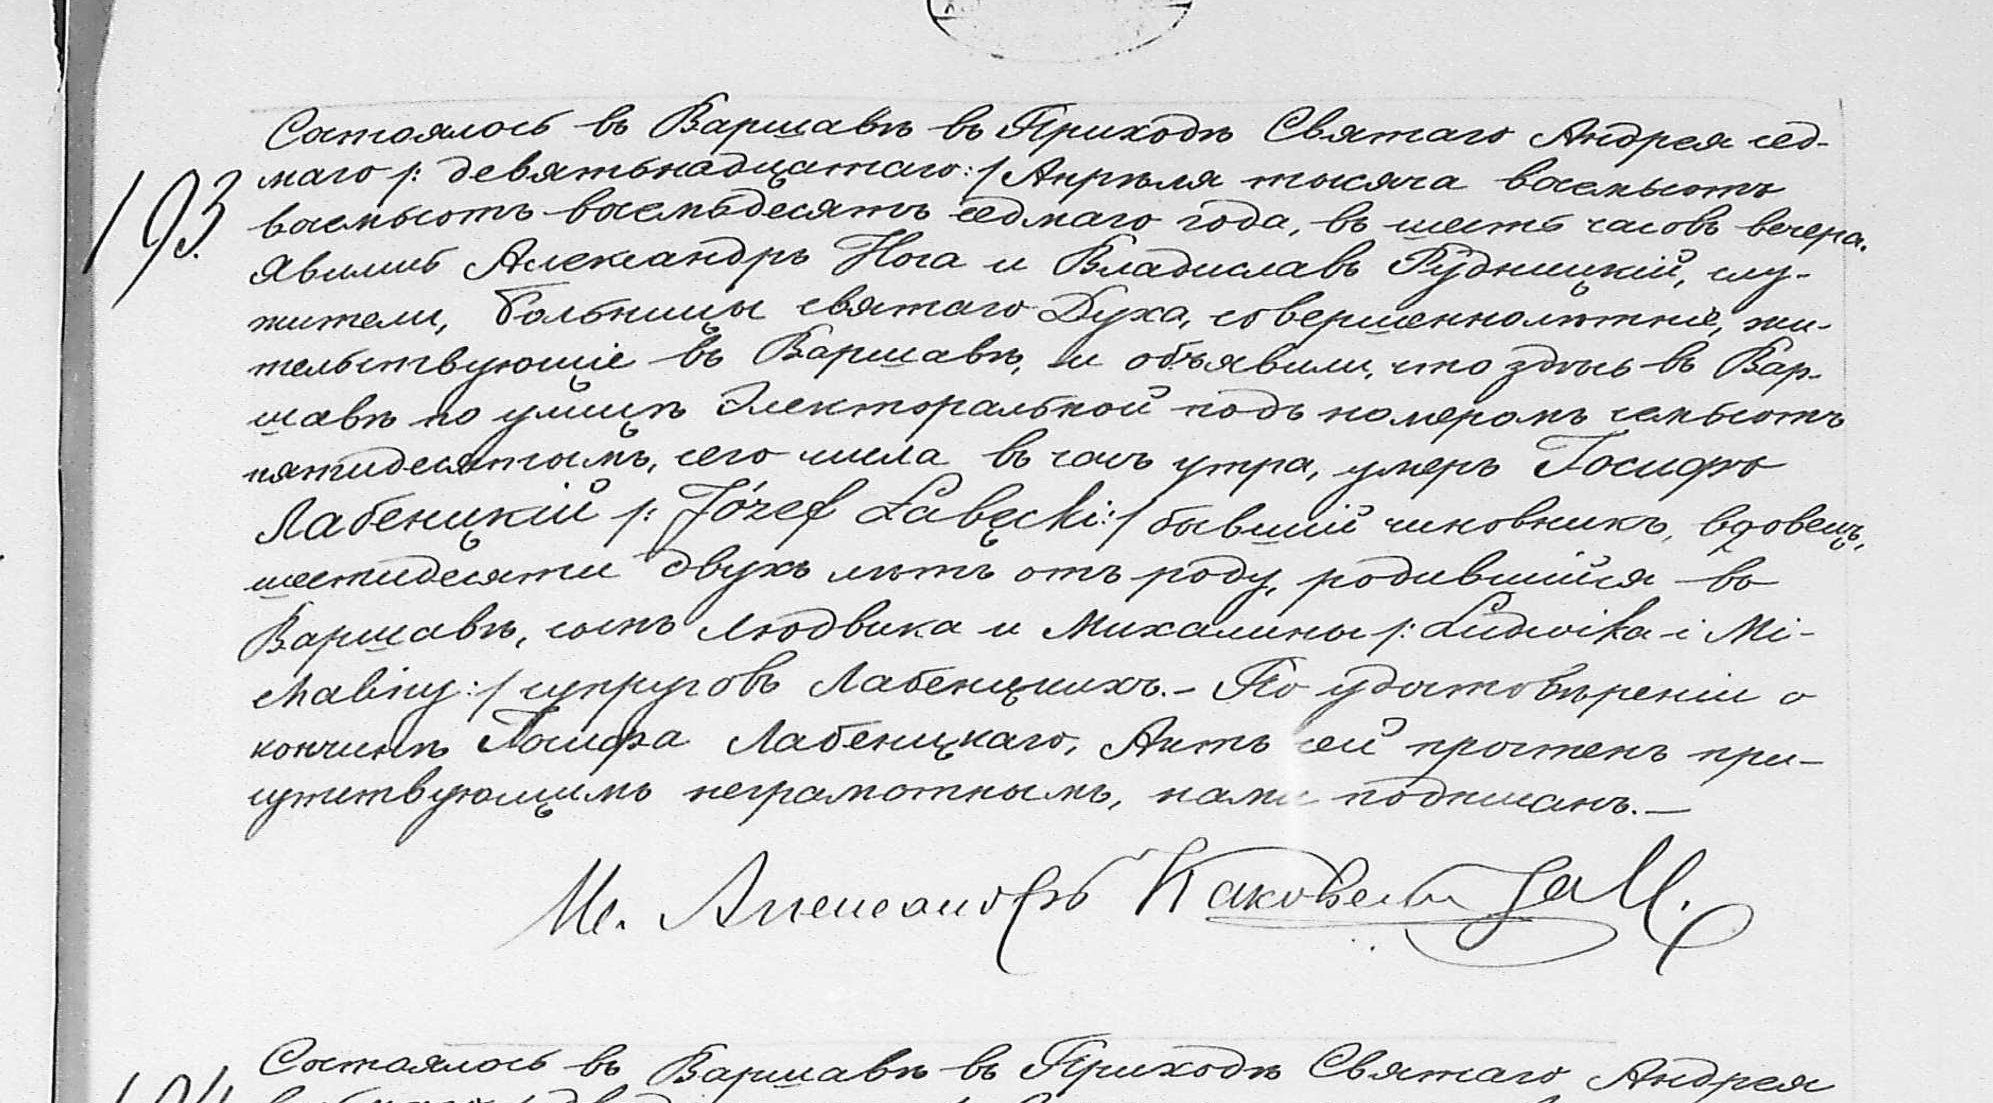 Состоялось въ Варшавѣ въ Приходѣ Святаго Андрея сед-
маго /: девятьнадцатаго :/ Апрѣля тысяча восемьсотъ
193.
восемьсотъ восемьдесятъ седмаго года, въ шесть часовъ вечера.
Явились Александръ Нога и Владиславъ Рудницкій, слу-
жители, Больницы святаго Духа, совершеннолѣтніе, жи-
тельствующіе въ Варшавѣ, и объявили, что здѣсь въ Вар-
шавѣ по улицѣ Электоральной подъ номеромъ семьсотъ
пятидесятымъ, сего числа въ часъ утра, умеръ Іосифъ
Лабенцкій /: Józef Łabęcki :/ бывшій чиновникъ, вдовецъ,
шестидесяти двухъ лѣтъ отъ роду, родившійся въ
Варшавѣ, сынъ Людвика и Михалины /: Ludwika i Mi-
chaliny :/ супруговъ Лабенцкихъ. – По удостовѣреніи о
кончинѣ Іосифа Лабенцкаго, Актъ сей прочтенъ при-
сутствующимъ неграмотнымъ, нами подписанъ. –
Александръ Каковскі
Состоялось въ Варшавѣ въ Приходѣ Святаго Андрея